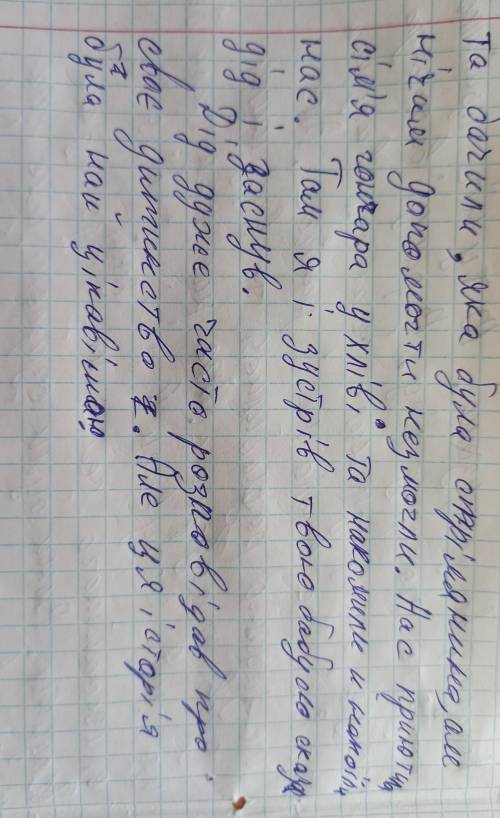 Та бачили, яка була отріманина, але
нічим допомогти незмогли. Нас приютила
сім'я гончара у хліві, та накомили и напоїли
нас. Там я і зустрів твою бабусю сказав
дід і заснув.
Дід дуже часто розповідав про
своє дитинство. Але ця історія
була най цікавішою